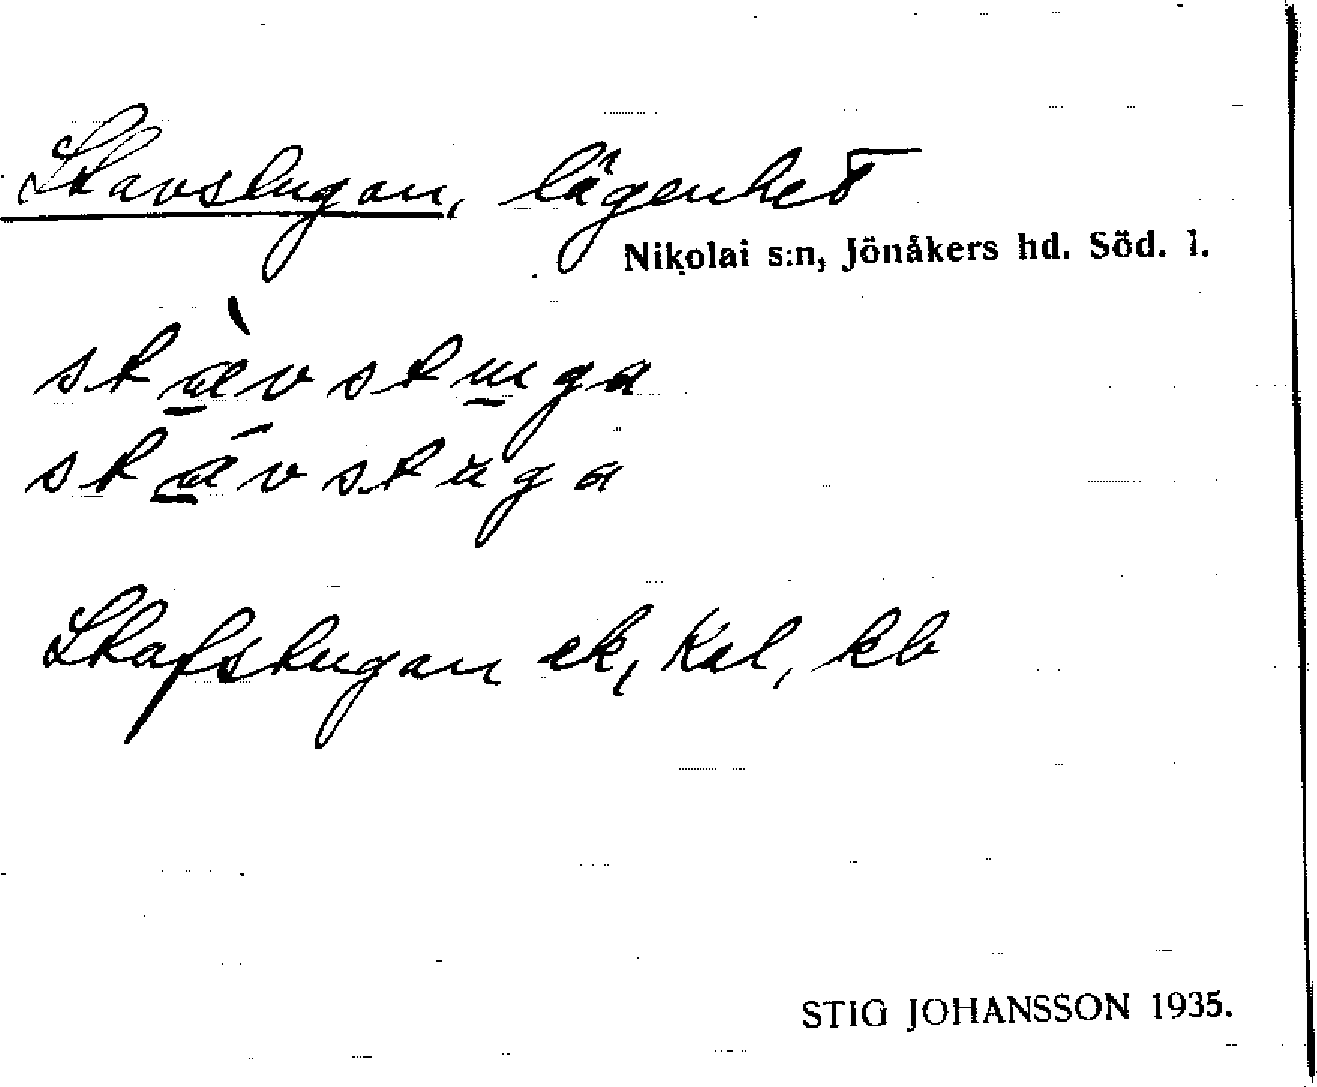 Skavstugan, lägenhet
Nikolai s:n, Jönåkers hd. Söd. l.
skàvstuga
skávstuga
Skafstugan ek, Kal, kb
STIG JOHANSSON 1935.